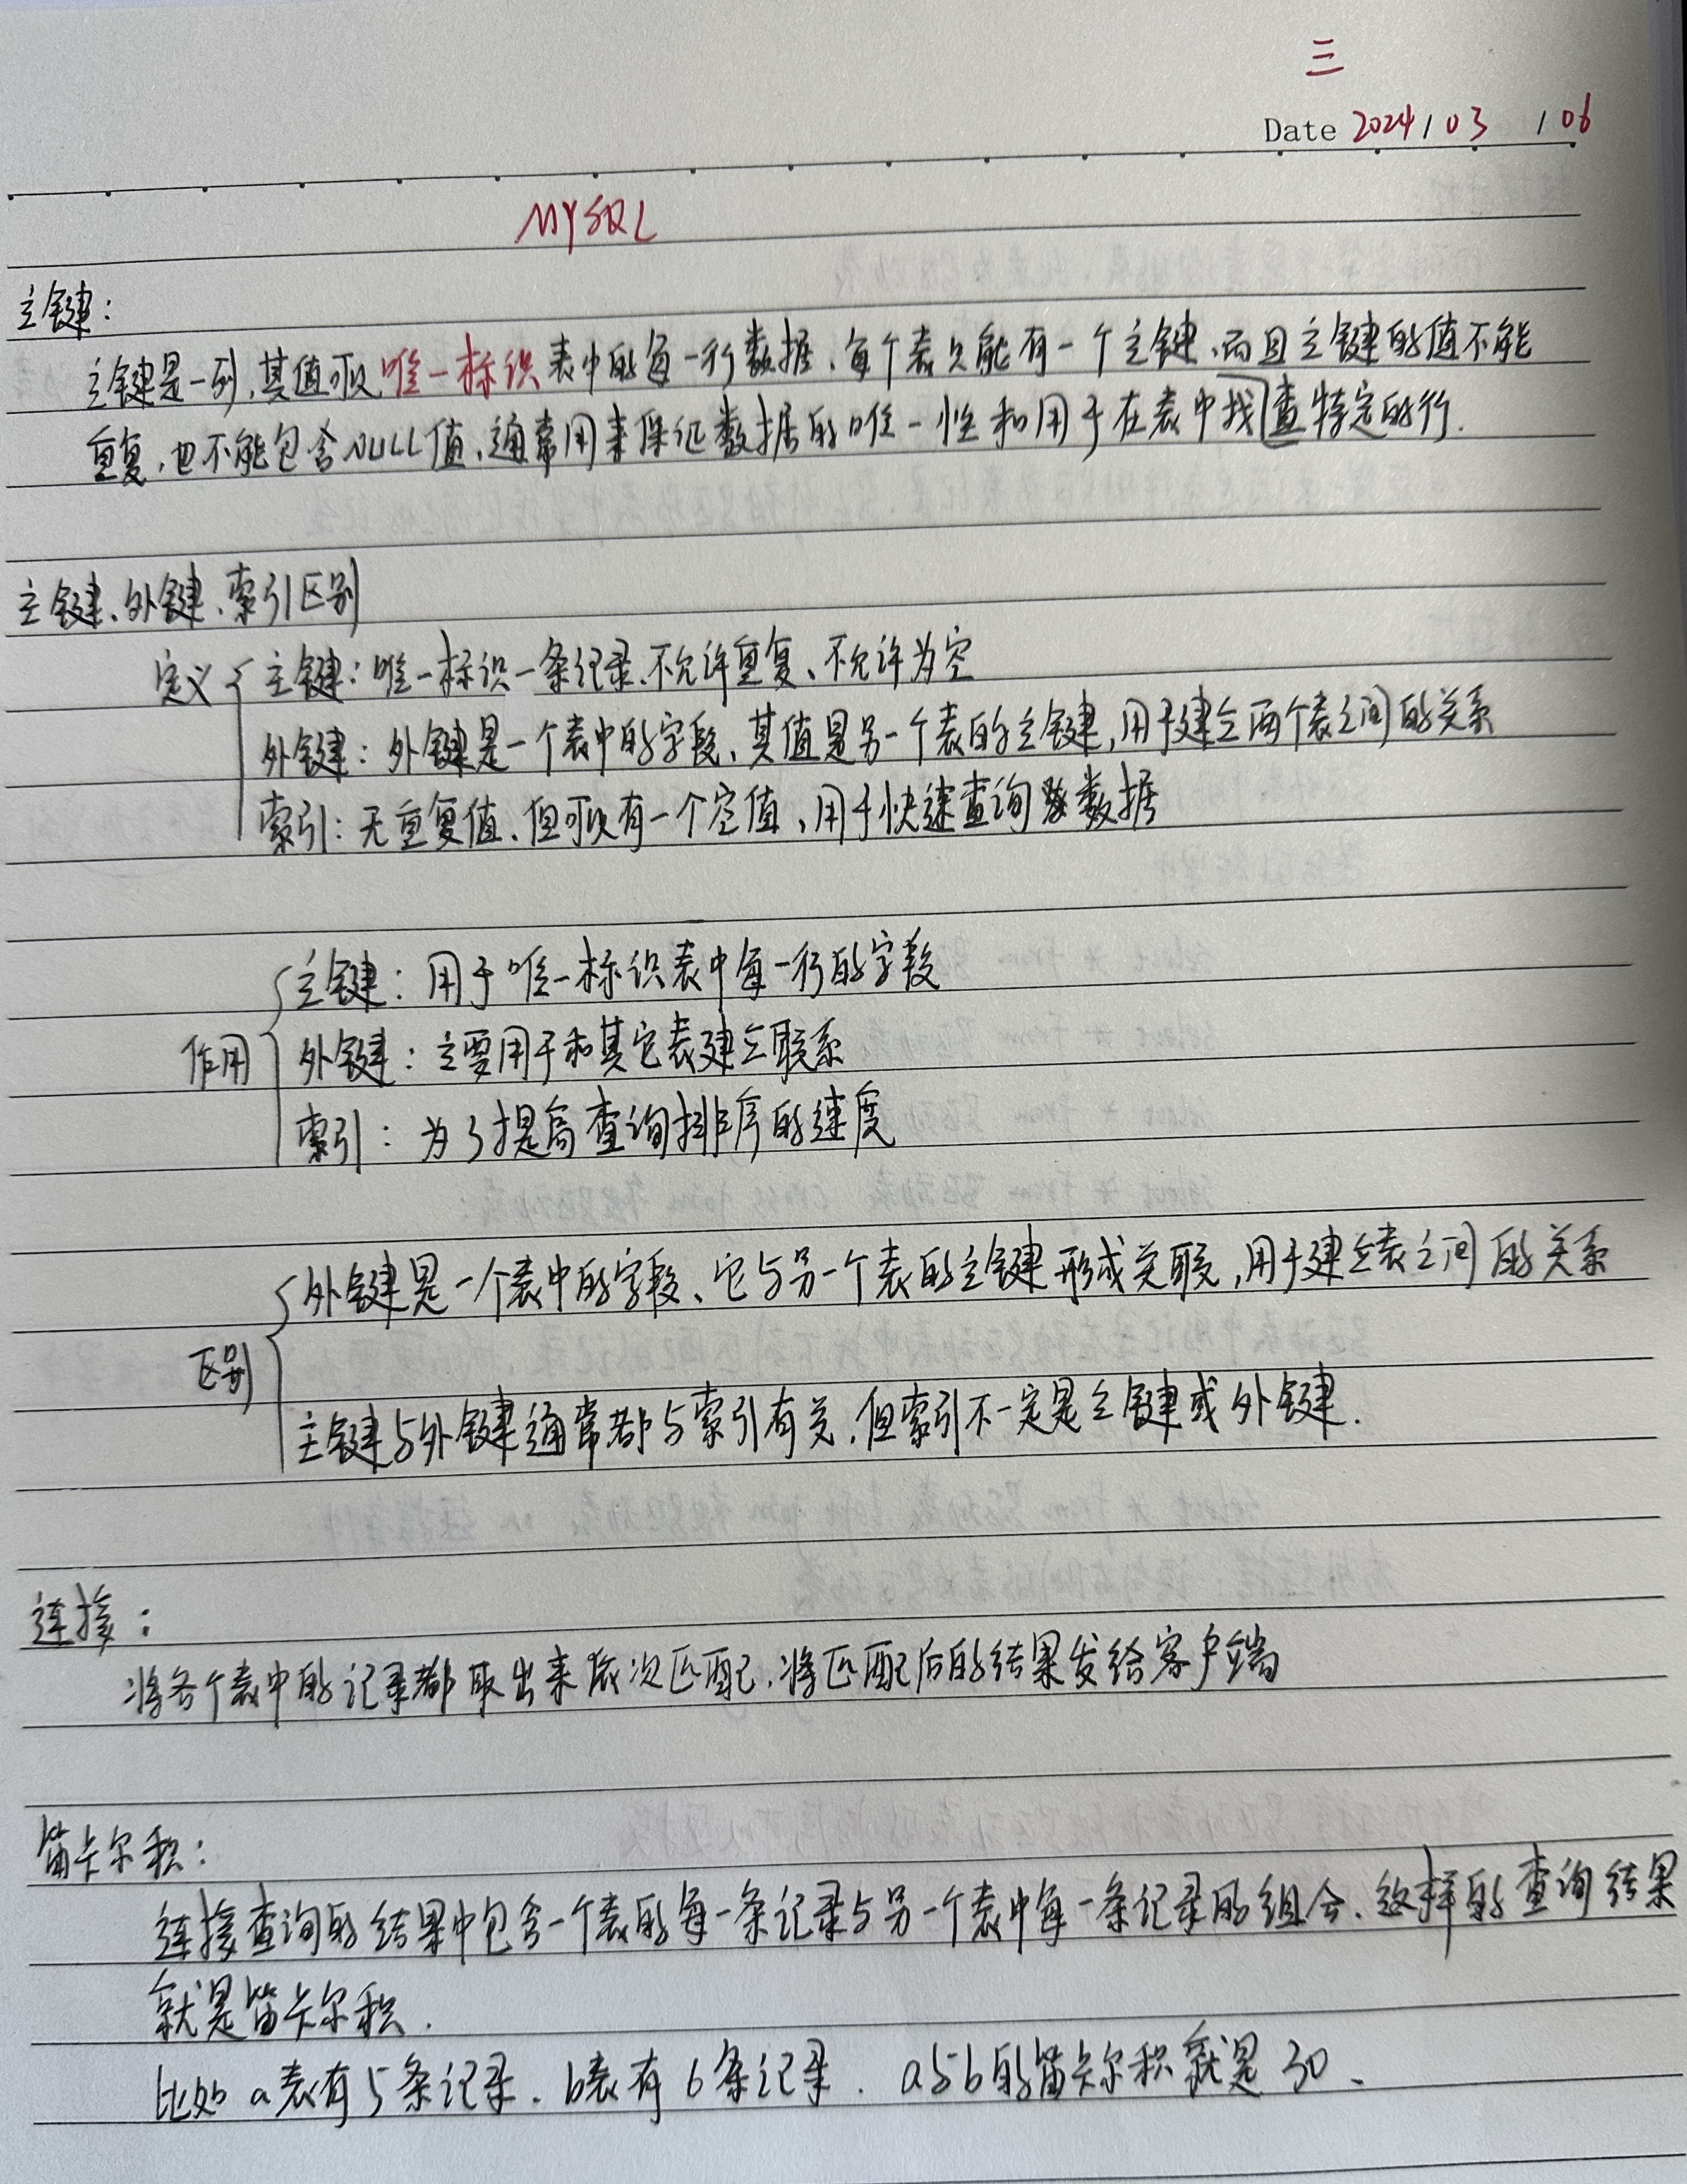 三
Date 2024/03/06
MYSQL
主键：
主键是一列，其值可以唯一标识表中的每一行数据，每个表只能有一个主键，而且主键的值不能
重复，也不能包含NULL值，通常用来保证数据的唯一性和用于在表中找查特定的行.
主键、外键、索引区别
定义 主键：唯一标识一条记录、不允许重复、不允许为空
外键：外键是一个表中的字段、其值是另一个表的主键，用于建立两个表之间的关系
索引：无重复值、但可以有一个空值，用于快速查询数据
主键：用于唯一标识表中每一行的字段
作用 外键：主要用于和其它表建立联系
索引：为了提高查询排序的速度
外键是一个表中的字段、它与另一个表的主键形成关联，用于建立表之间的关系
区别
主键与外键通常都与索引有关，但索引不一定是主键或外键.
连接：
将各个表中的记录都取出来依次匹配，将匹配后的结果发给客户端
笛卡尔积：
连接查询的结果中包含一个表的每一条记录与另一个表中每一条记录的组合、这样的查询结果
就是笛卡尔积.
比如a表有5条记录、b表有6条记录、a与b的笛卡尔积就是30、